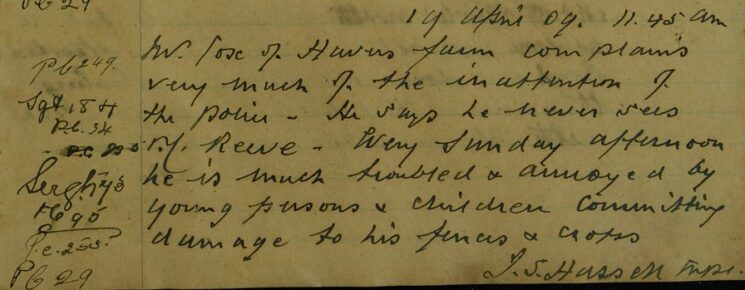 PC 29
19 April 09. 11.45 am
Mr. Cox of Havers farm complains
very much of the inattention of
the police - He says he never sees
P.C. Reeve - Every Sunday afternoon
he is much troubled & annoyed by
young persons & children committing
damage to his fences & crops
J. S. Hassell Inspr.
PC 249.
Sgt 18 H
P.C. 34
PC 95
P.C. 255.
PC 29